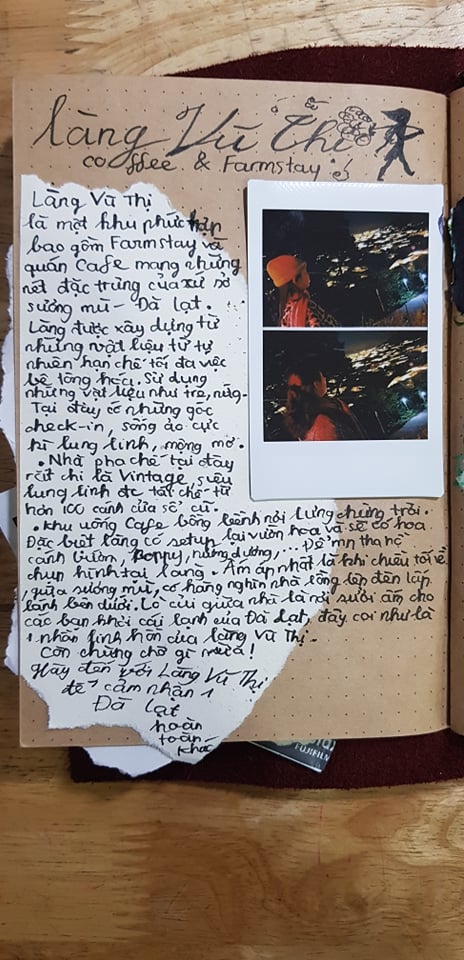 Làng Vũ Thị
coffee & Farmstay
Làng Vũ Thị
là một khu phức hợp
bao gồm Farmstay và
quán Cafe mang những
nét đặc trưng của xứ sở
sương mù - Đà Lạt.
Làng được xây dựng từ
những vật liệu từ tự
nhiên hạn chế tối đa việc
bê tông hóa. Sử dụng
những vật liệu như tre, nứa.
Tại đây có những góc
check-in, sống ảo cực
kì lung linh, mộng mơ.
. Nhà pha chế tại đây
rất chi là Vintage, siêu
lung linh đc tái chế từ
hơn 100 cánh cửa sổ cũ.
. Khu uống Cafe bồng bềnh nơi lưng chừng trời.
Đặc biệt làng có setup lại vườn hoa và sẽ có hoa
cánh bướm, poppy, hướng dương,... Để mn tha hồ
chụp hình tại làng. Ấm áp nhất là khi chiều tối về
, giữa sương mù, có hàng nghìn nhà lồng lấp đèn lấp
lánh bên dưới. Lò củi giữa nhà là nơi sưởi ấm cho
các bạn khỏi cái lạnh của Đà Lạt, đây coi như là
1 nhân linh hồn của làng Vũ Thị.
Còn chừng chờ gì nữa!
Hãy đến với Làng Vũ Thị
để cảm nhận 1
Đà Lạt
hoàn
toàn
khác
FUJIFILM